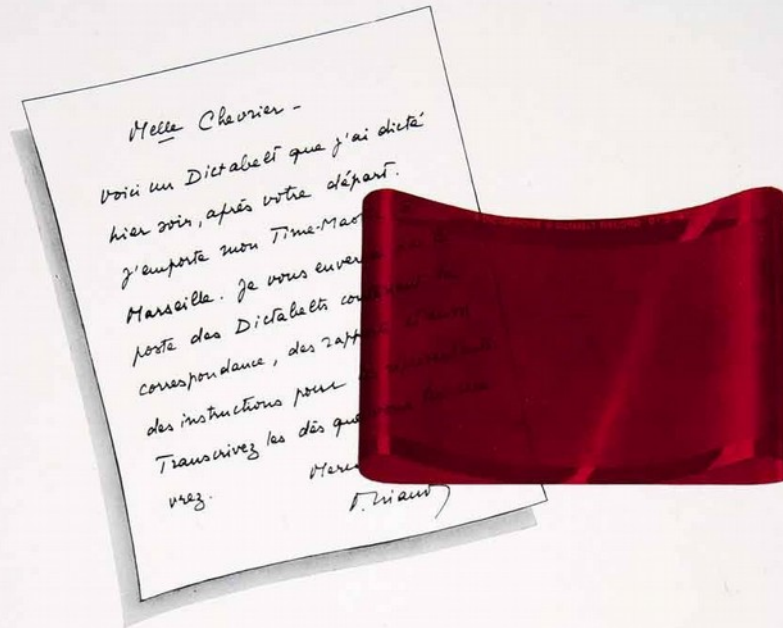 Melle Chevrier -
Voici un Dictabelt que j'ai dicté
hier soir, après votre départ.
J'emporte mon Time-Mas
Marseille. Je vous enverrai
poste des Dictabelts contenant la
correspondance, des rapports
des instructions pour
Transcrivez les dès que vous
vrez.
Merci